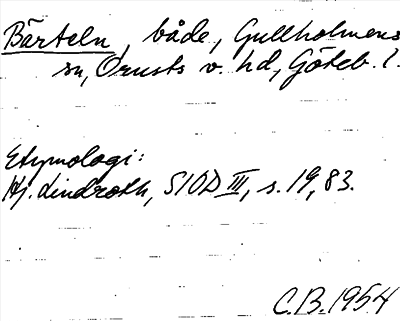 Bärteln, både, Gullholmens
sn, Orusts v. hd, Göteb. l.
Etymologi:
Hj. Lindroth, SIOD III, s. 19, 83.
C.B. 1954